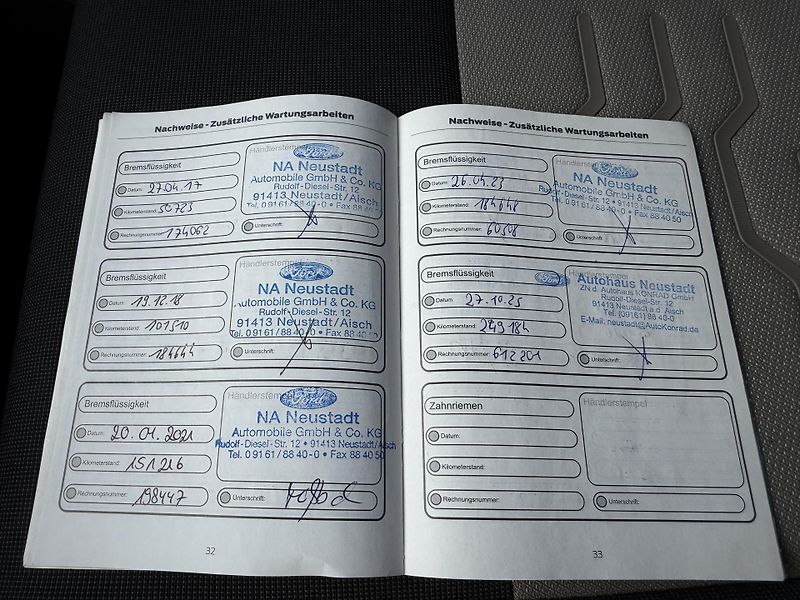 Nachweise - Zusätzliche Wartungsarbeiten
Bremsflüssigkeit
Datum: 27.04.17
Kilometerstand: 50723
Rechnungsnummer: 174062
Händlerstempel
Ford
NA Neustadt
Automobile GmbH & Co. KG
Rudolf-Diesel-Str. 12
91413 Neustadt/Aisch
Tel. 0 91 61 / 88 40-0 • Fax 88 40 50
Unterschrift:
Bremsflüssigkeit
Datum: 19.12.18
Kilometerstand: 101510
Rechnungsnummer: 184644
Händlerstempel
Ford
NA Neustadt
Automobile GmbH & Co. KG
Rudolf-Diesel-Str. 12
91413 Neustadt/Aisch
Tel. 0 91 61 / 88 40-0 • Fax 88 40 50
Unterschrift:
Bremsflüssigkeit
Datum: 20.01.2021
Kilometerstand: 151216
Rechnungsnummer: 198447
Händlerstempel
Ford
NA Neustadt
Automobile GmbH & Co. KG
Rudolf-Diesel-Str. 12 • 91413 Neustadt/Aisch
Tel. 0 91 61 / 88 40-0 • Fax 88 40 50
Unterschrift:
32
Nachweise - Zusätzliche Wartungsarbeiten
Bremsflüssigkeit
Datum: 26.04.23
Kilometerstand: 184648
Rechnungsnummer: 60508
Händlerstempel
Ford
NA Neustadt
Automobile GmbH & Co. KG
Rudolf-Diesel-Str. 12 • 91413 Neustadt/Aisch
Tel. 0 91 61 / 88 40-0 • Fax 88 40 50
Unterschrift:
Bremsflüssigkeit
Datum: 27.10.25
Kilometerstand: 249184
Rechnungsnummer: 612201
Händlerstempel
Ford
Autohaus Neustadt
ZN d. Autohaus KONRAD GmbH
Rudolf-Diesel-Str. 12
91413 Neustadt a.d. Aisch
Tel. (09161) 88 40-0
E-Mail: neustadt@AutoKonrad.de
Unterschrift:
Zahnriemen
Datum:
Kilometerstand:
Rechnungsnummer:
Händlerstempel
Unterschrift:
33